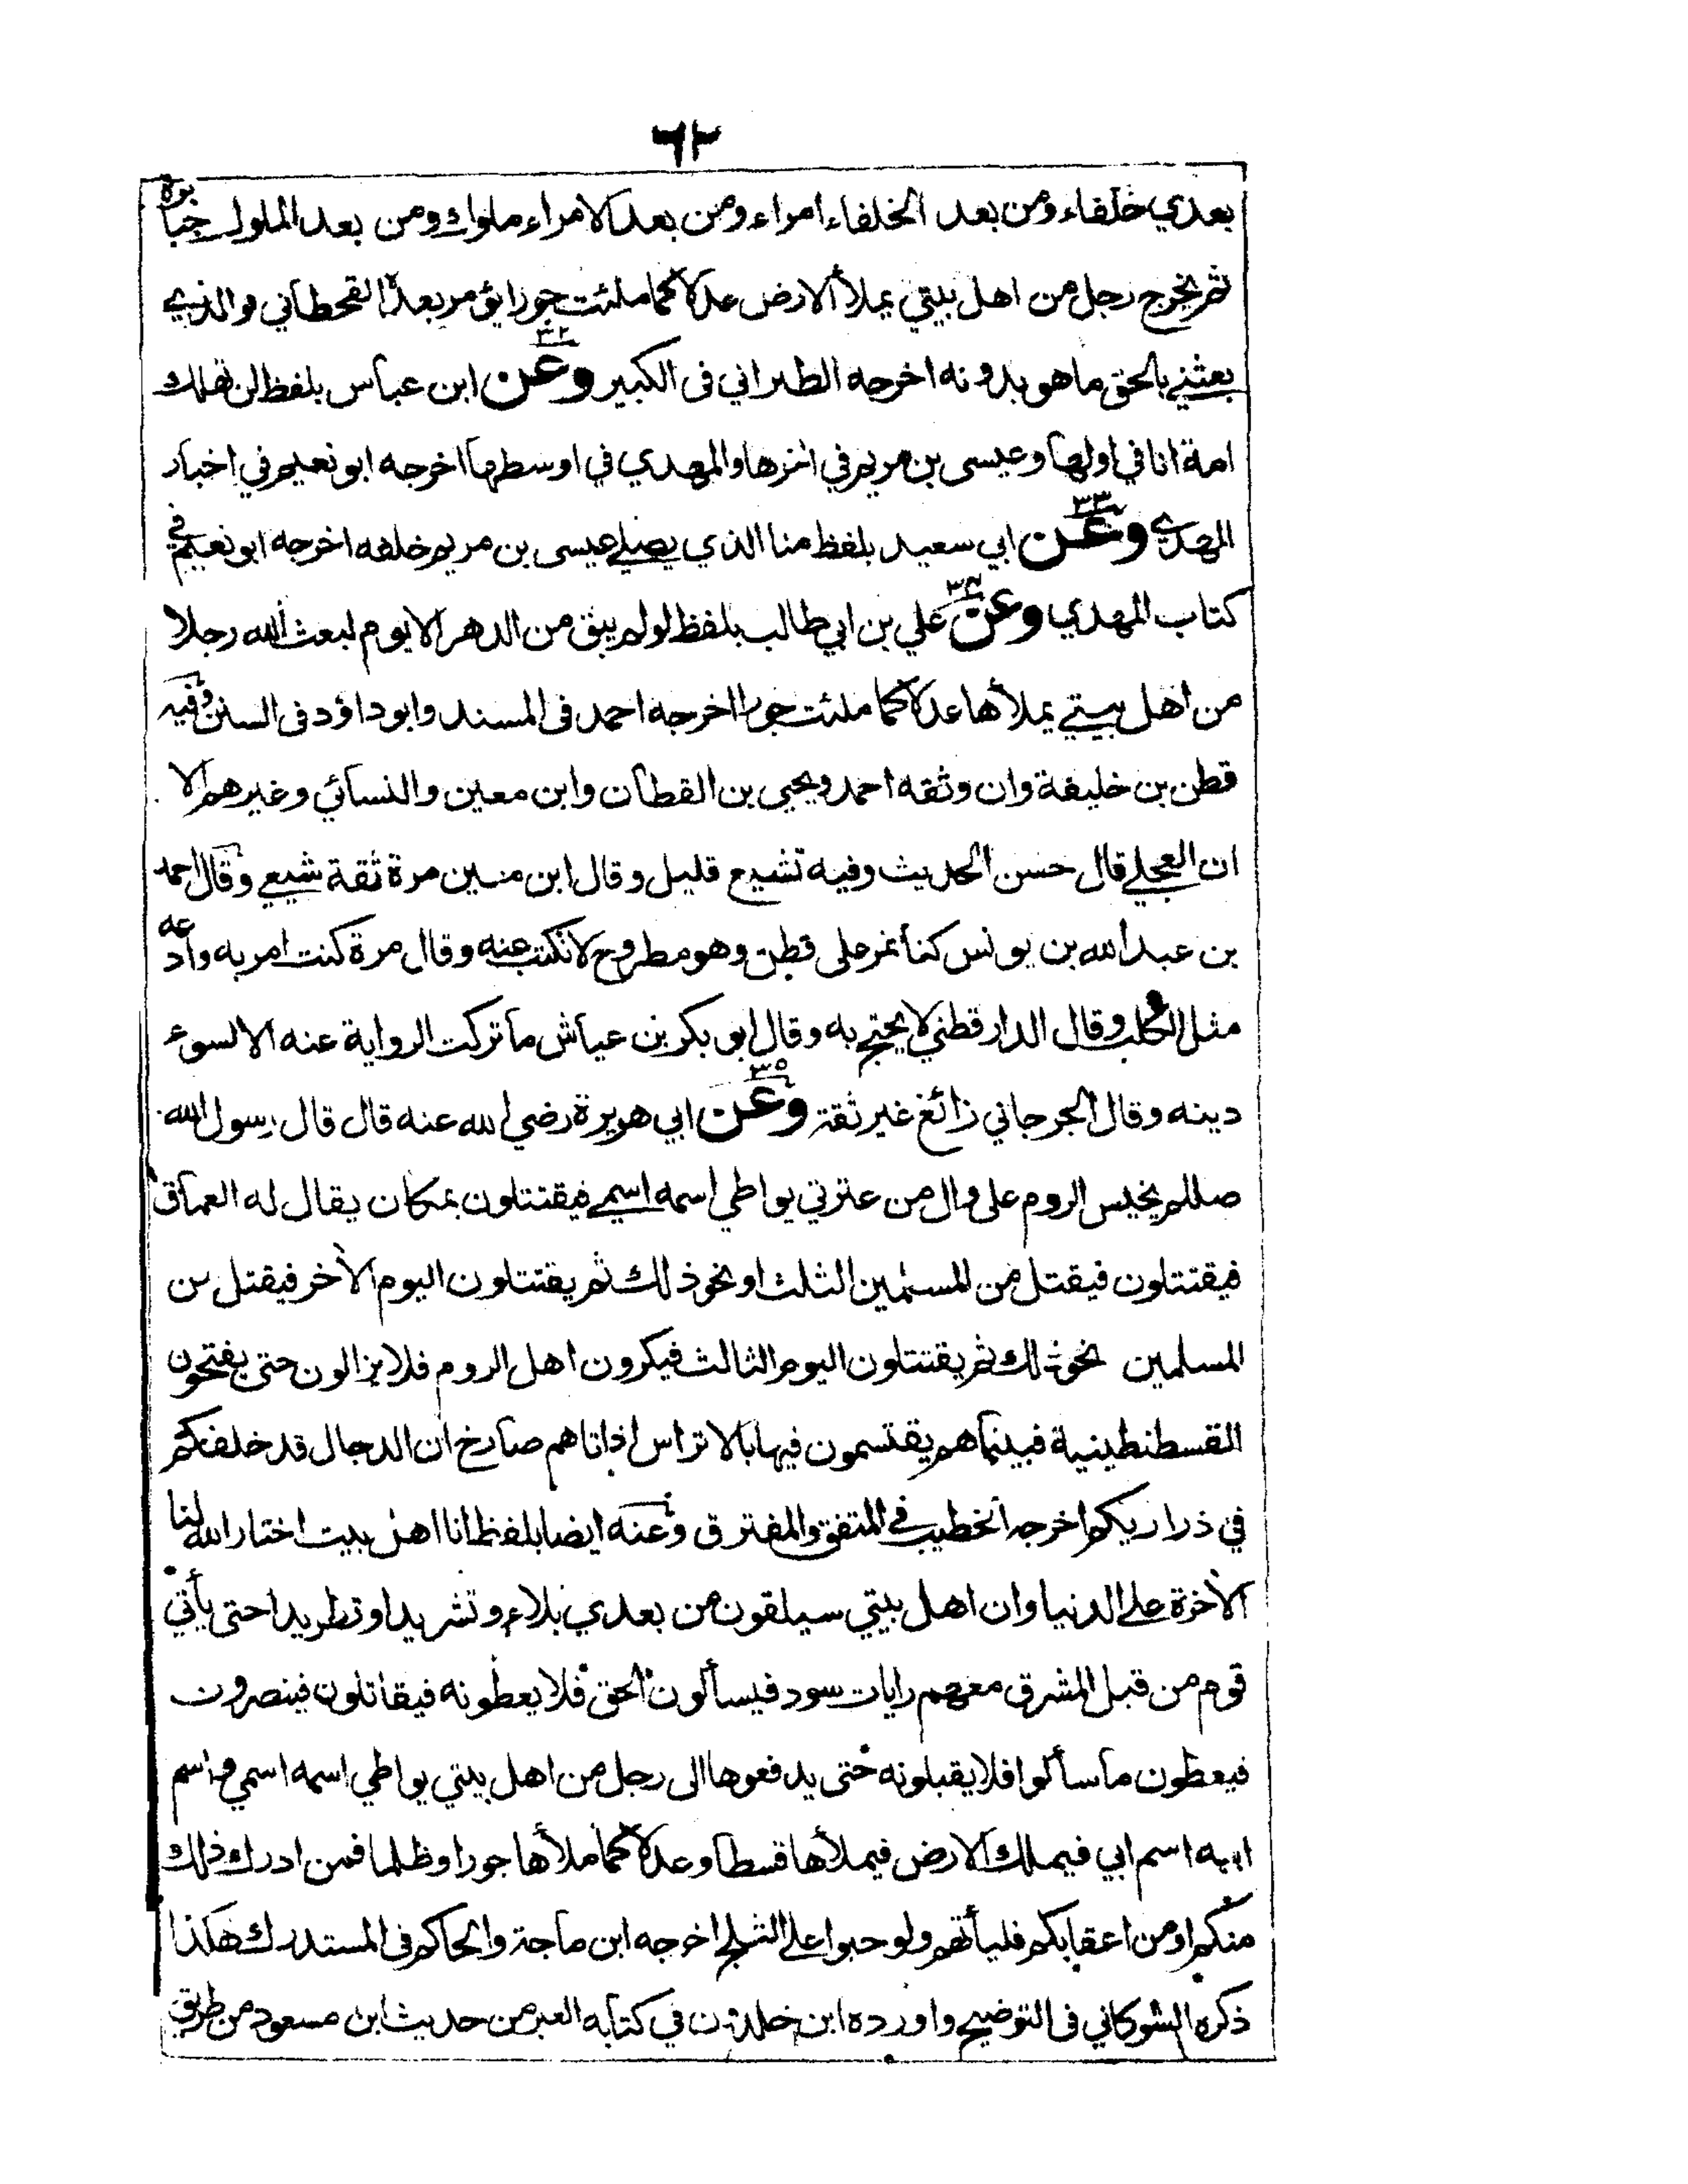 ٦٢
بعدي خلفاء ومن بعد الخلفاء امراء ومن بعد الامراء ملوك ومن بعد الملوك جبابرة
ثم يخرج رجل من اهل بيتي يملأ الارض عدلا كما ملئت جورا يؤمر بعده القحطاني فوالذي
بعثني بالحق ما هو بدونه اخرجه الطبراني فى الكبير ٣٢ وعن ابن عباس بلفظ لن تهلك
امة انا في اولها وعيسى بن مريم في اخرها والمهدي في اوسطها اخرجه ابو نعيم في اخبار
المهدي ٣٣ وعن ابي سعيد بلفظ منا الذي يصلي عيسى بن مريم خلفه اخرجه ابو نعيم في
كتاب المهدي ٣٤ وعن علي بن ابي طالب بلفظ لو لم يبق من الدهر الا يوم لبعث الله رجلا
من اهل بيتي يملأها عدلا كما ملئت جورا اخرجه احمد فى المسند وابو داؤد فى السنن وفيه
قطن بن خليفة وان وثقه احمد ويحيى بن القطان وابن معين والنسائي وغيرهم الا
ان العجلي قال حسن الحديث وفيه تشيع قليل وقال ابن معين مرة ثقة شيعي وقال احمد
بن عبد الله بن يونس كنا نمر على قطن وهو مطروح لا نكتب عنه وقال مرة كنت امر به وادعه
مثل الكلب وقال الدارقطني لا يحتج به وقال ابو بكر بن عياش ما تركت الرواية عنه الا لسوء
دينه وقال الجرجاني زائغ غير ثقة ٣٥ وعن ابي هريرة رضي الله عنه قال قال رسول الله
صللم يخيس الروم على وال من عترتي يواطي اسمه اسمي فيقتتلون بمكان يقال له العماق
فيقتتلون فيقتل من المسلمين الثلث او نحو ذلك ثم يقتتلون اليوم الآخر فيقتل من
المسلمين نحو ذلك ثم يقتتلون اليوم الثالث فيكرون اهل الروم فلا يزالون حتى يفتحون
القسطنطينية فبينما هم يقتسمون فيها بالاتراس اذ اتاهم صارخ ان الدجال قد خلفكم
في ذراريكم اخرجه الخطيب في المتفق والمفترق وعنه ايضا بلفظ انا اهل بيت اختار الله لنا
الآخرة على الدنيا وان اهل بيتي سيلقون من بعدي بلاء وتشريدا وتطريدا حتى يأتي
قوم من قبل المشرق معهم رايات سود فيسألون الحق فلا يعطونه فيقاتلون فينصرون
فيعطون ما سألوا فلا يقبلونه حتى يدفعوها الى رجل من اهل بيتي يواطي اسمه اسمي واسم
ابيه اسم ابي فيملك الارض فيملأها قسطا وعدلا كما ملأها جورا وظلما فمن ادرك ذلك
منكم او من اعقابكم فليأتهم ولو حبوا على الثلج اخرجه ابن ماجة والحاكم فى المستدرك هكذا
ذكره الشوكاني فى التوضيح واورده ابن خلدون في كتابه العبر من حديث ابن مسعود من طريق